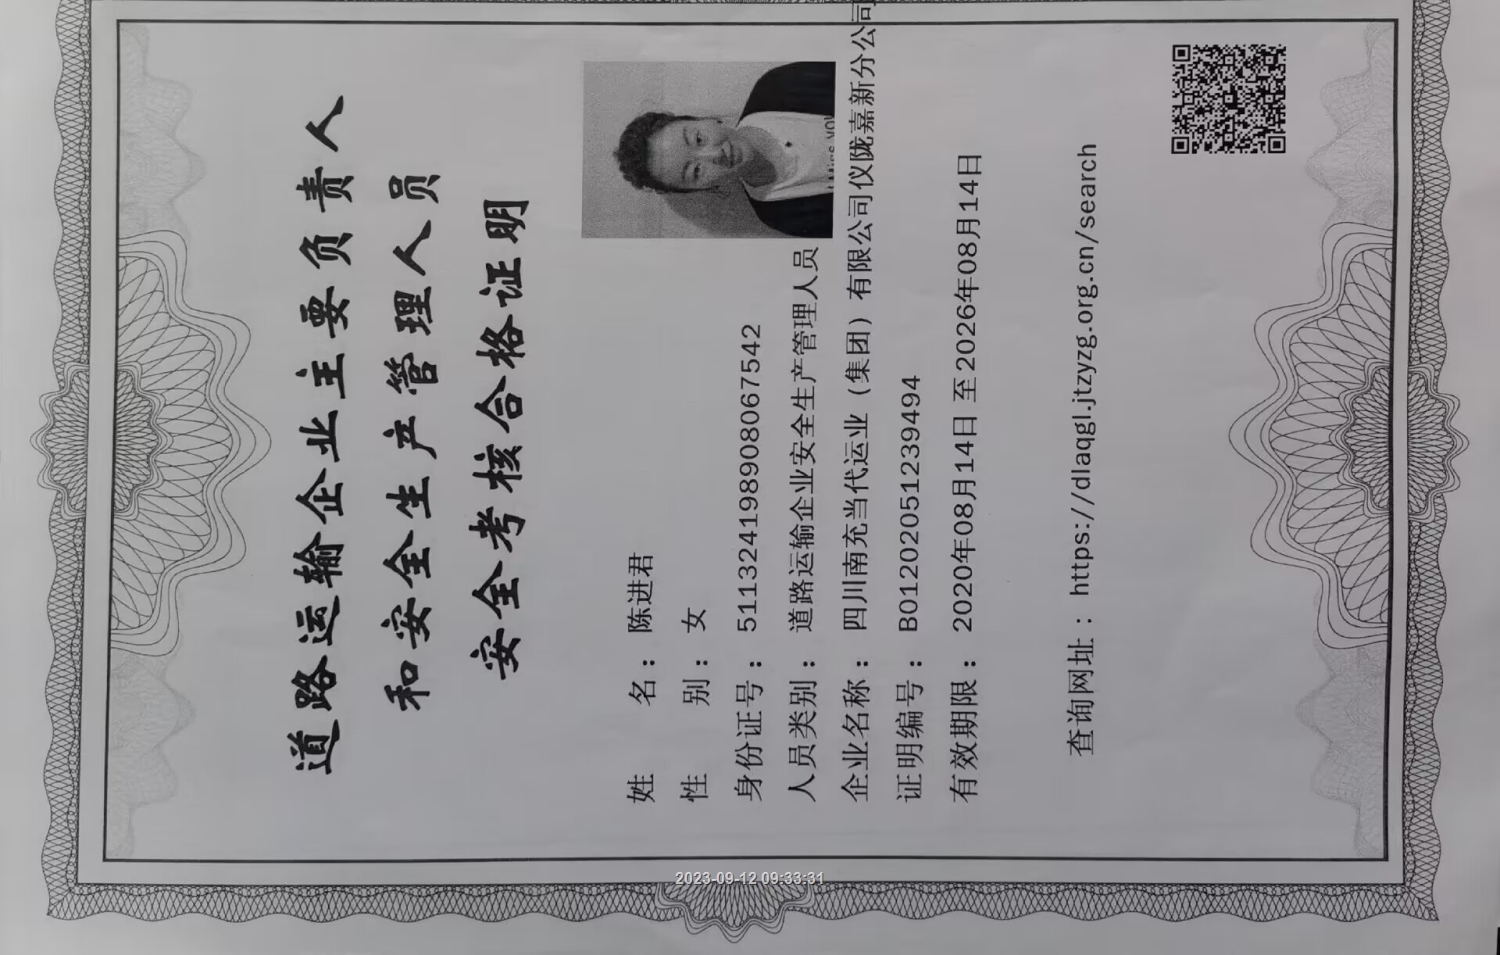 道路运输企业主要负责人
和安全生产管理人员
安全考核合格证明
姓名：陈进君
性别：女
身份证号：511324198908067542
人员类别：道路运输企业安全生产管理人员
企业名称：四川南充当代运业（集团）有限公司仪陇嘉新分公司
证明编号：B01202051239494
有效期限：2020年08月14日 至 2026年08月14日
查询网址：https://dlaqgl.jtzyzg.org.cn/search
2023-09-12 09:33:31